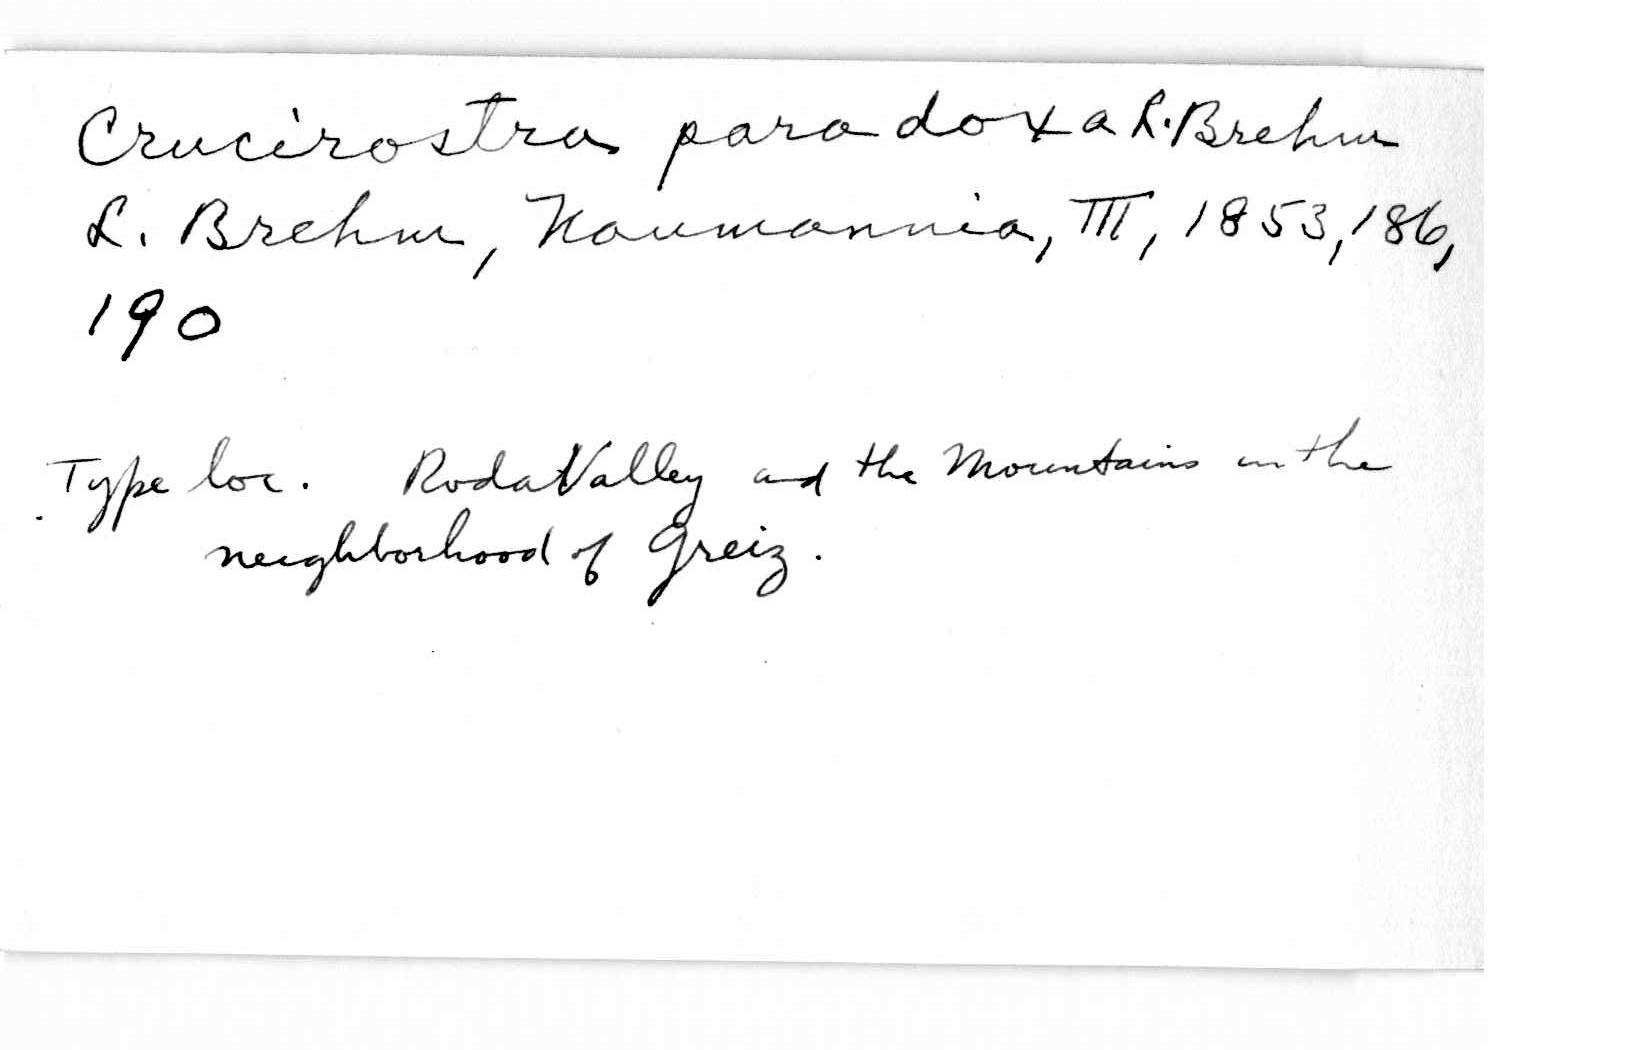 Crucirostra paradoxa L. Brehm
L. Brehm, Naumannia, III, 1853, 186,
190
Type loc. Roda Valley and the Mountains in the
neighborhood of Greiz.